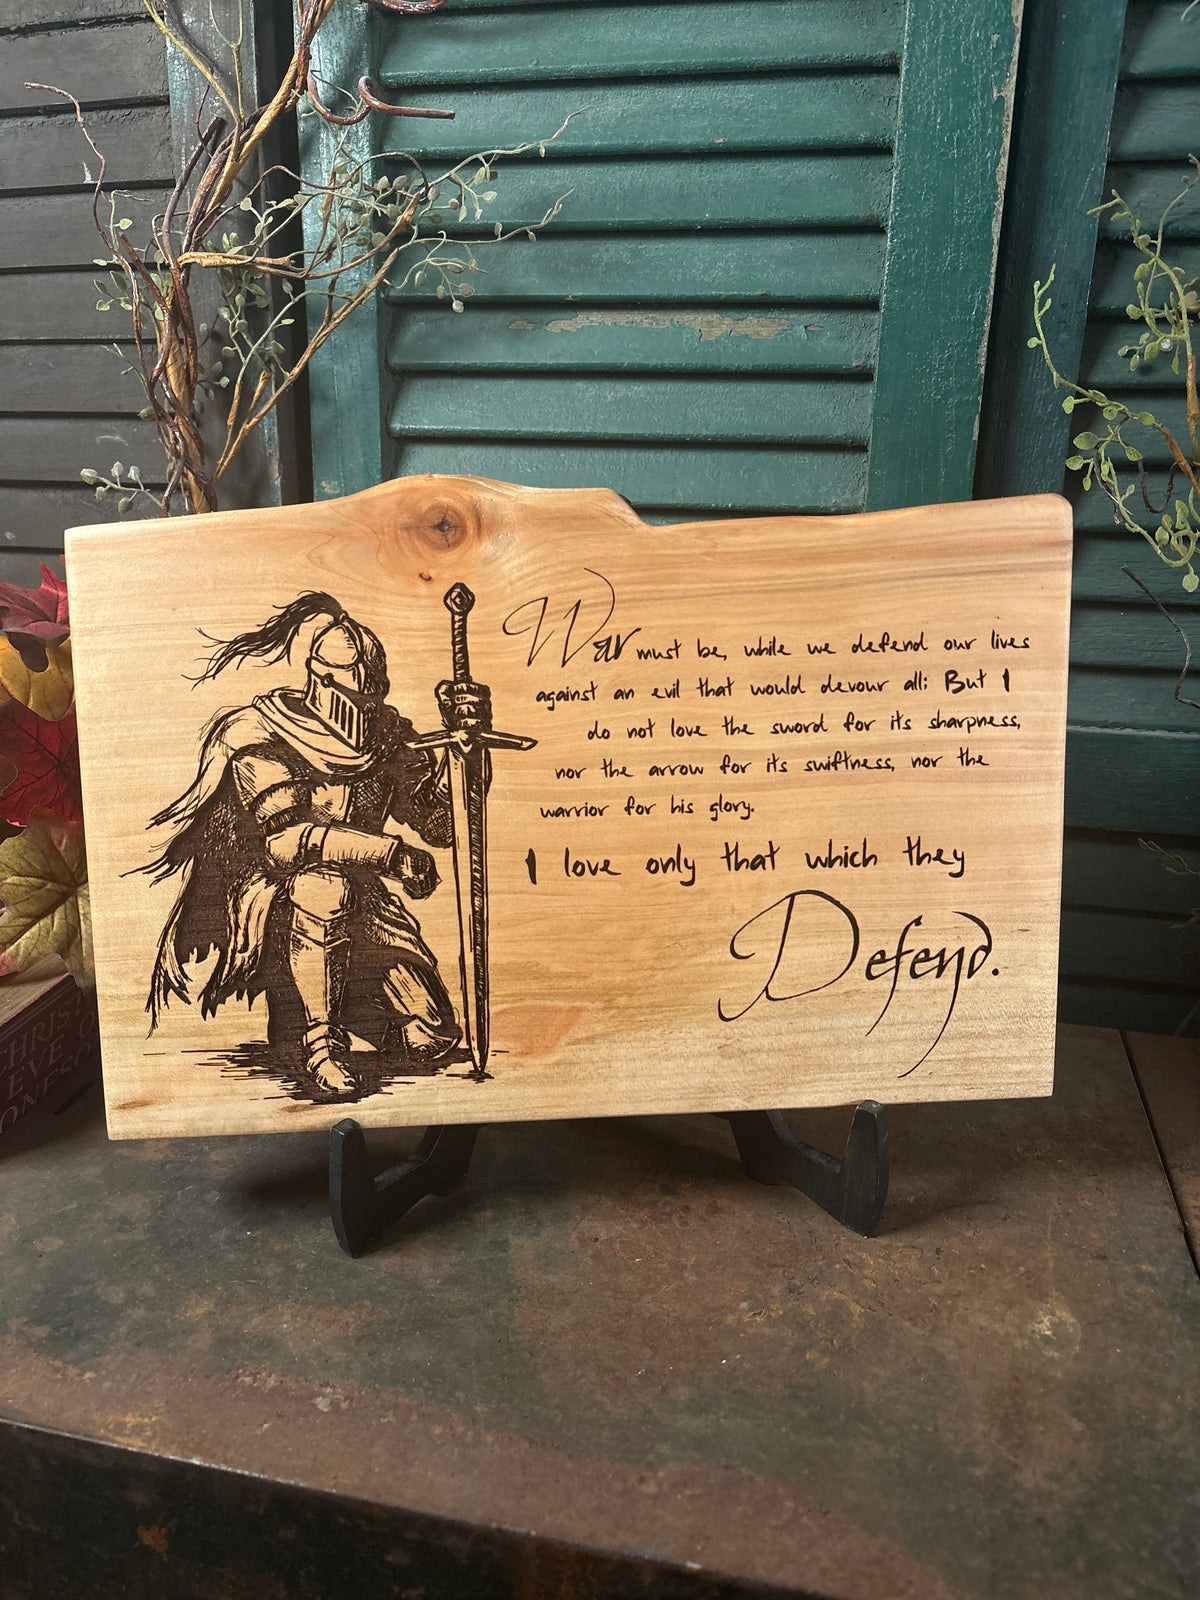 War must be, while we defend our lives
against an evil that would devour all; But I
do not love the sword for its sharpness,
nor the arrow for its swiftness, nor the
warrior for his glory.
I love only that which they
Defend.
EVE